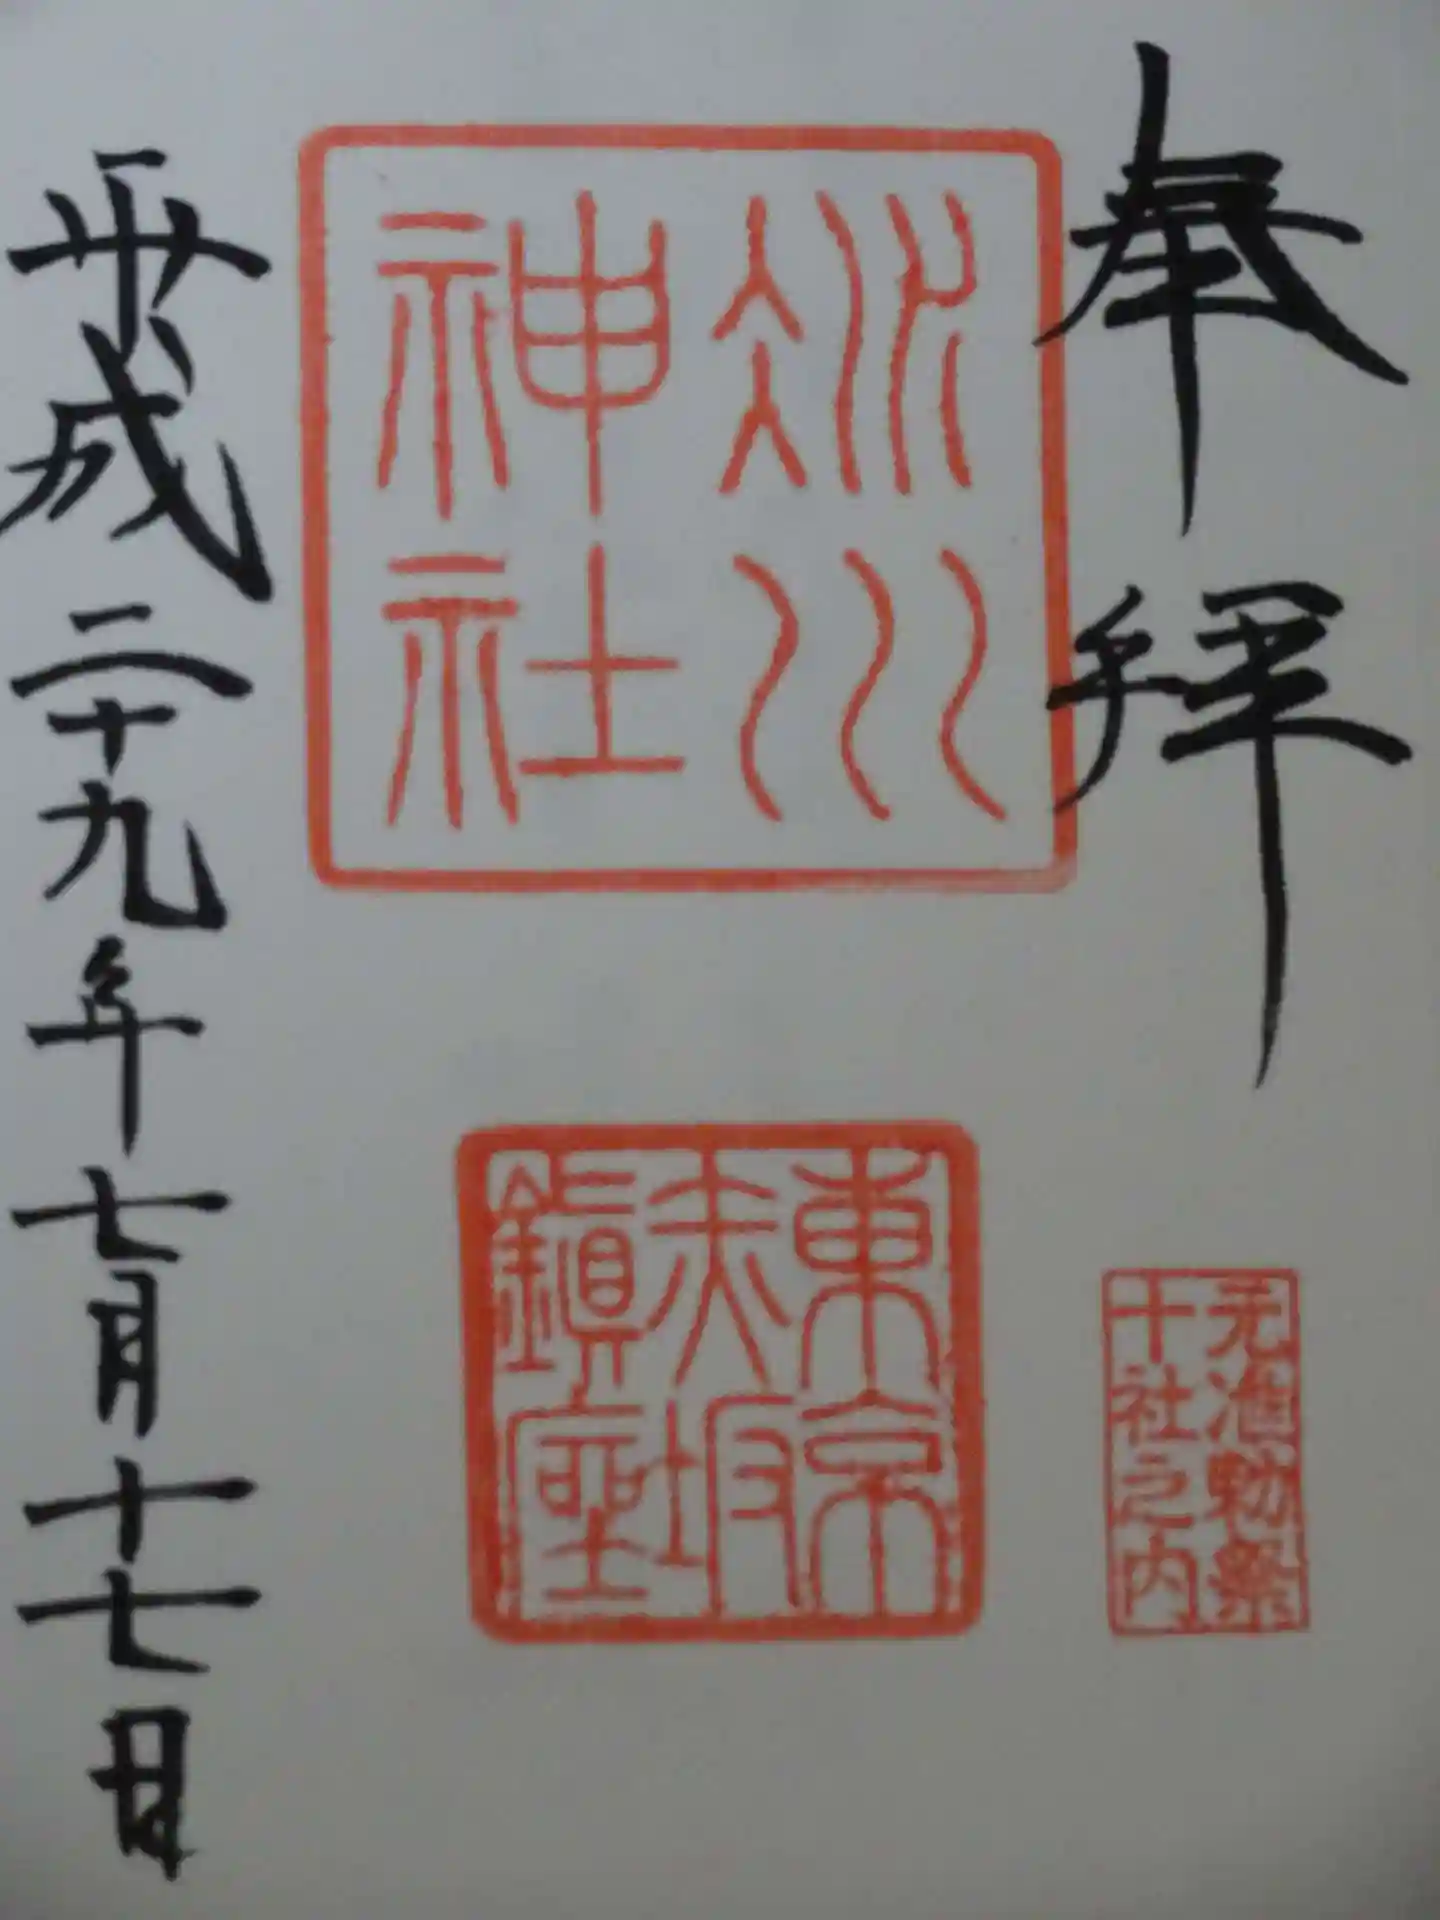 奉拝
元准勅祭
十社之内
氷川
神社
東京
赤坂
鎮座
平成二十九年七月十七日